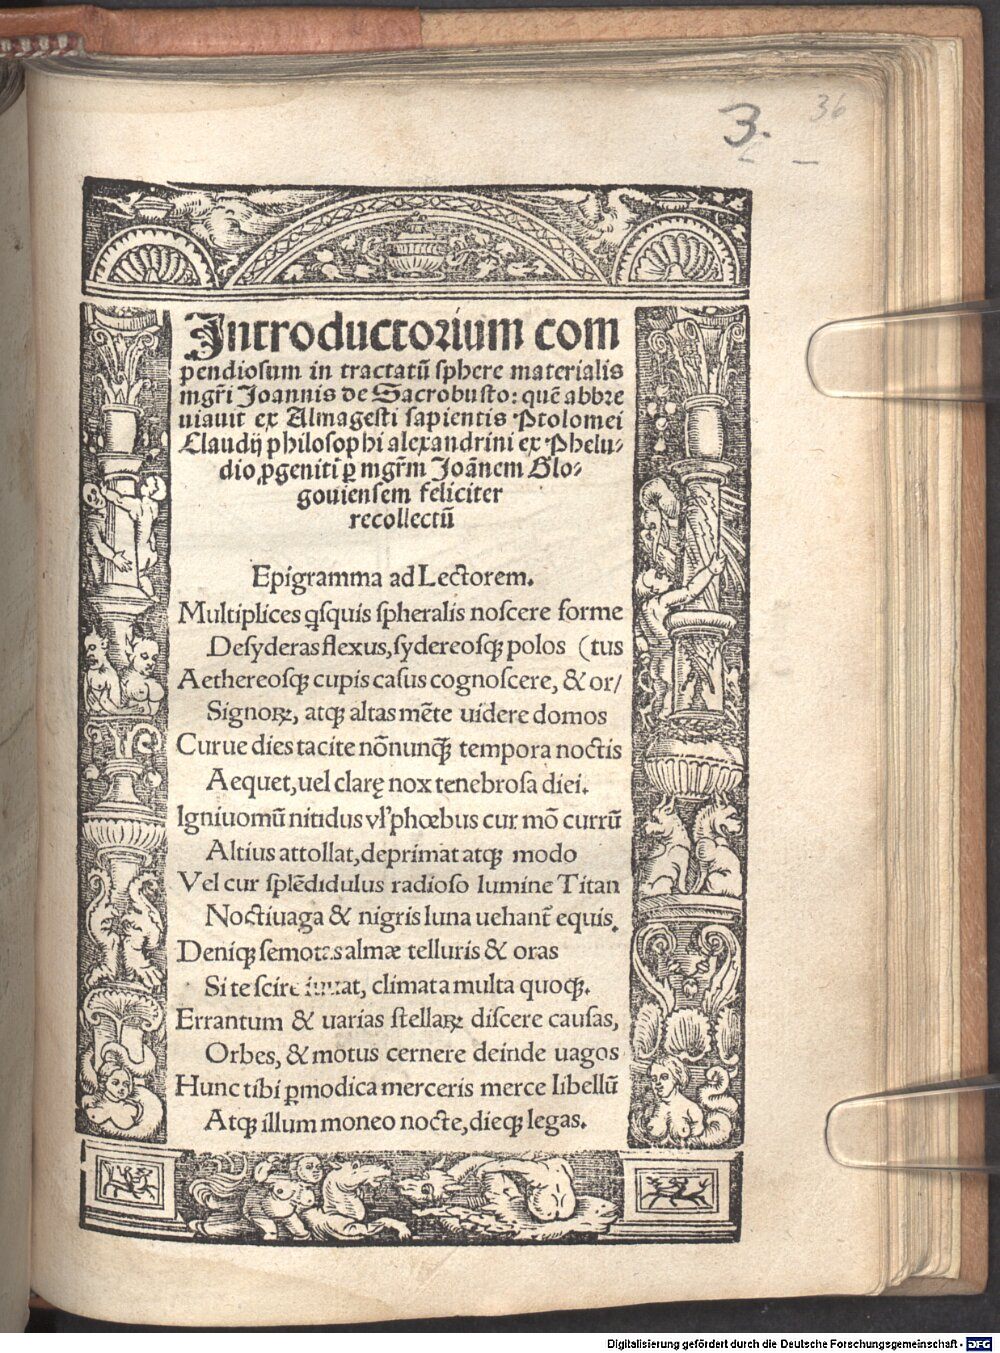 3.
36
Introductorium com
pendiosum in tractatū sphere materialis
mgr̄i Joannis de Sacrobusto: quē abbre
uiauit ex Almagesti sapientis Ptolomei
Claudij philosophi alexandrini ex Phelu-
dio ꝓgeniti ꝑ mgr̄m Joānem Glo-
gouiensem feliciter
recollectū
Epigramma ad Lectorem.
Multiplices qͥsquis spheralis noscere forme
Desyderas flexus, sydereosqꝫ polos (tus
Aethereosqꝫ cupis casus cognoscere, & or/
Signoꝝ, atqꝫ altas mēte uidere domos
Curue dies tacite nōnunqꝫ tempora noctis
Aequet, uel clarę nox tenebrosa diei.
Igniuomū nitidus vl' phœbus cur mō currū
Altius attollat, deprimat atqꝫ modo
Vel cur splēdidulus radioso lumine Titan
Noctiuaga & nigris luna uehant̄ equis.
Deniqꝫ semotas almæ telluris & oras
Si te scire iuuat, climata multa quoqꝫ.
Errantum & uarias stellaꝝ discere causas,
Orbes, & motus cernere deinde uagos
Hunc tibi ꝑmodica merceris merce libellū
Atqꝫ illum moneo nocte, dieqꝫ legas.
Digitalisierung gefördert durch die Deutsche Forschungsgemeinschaft - DFG